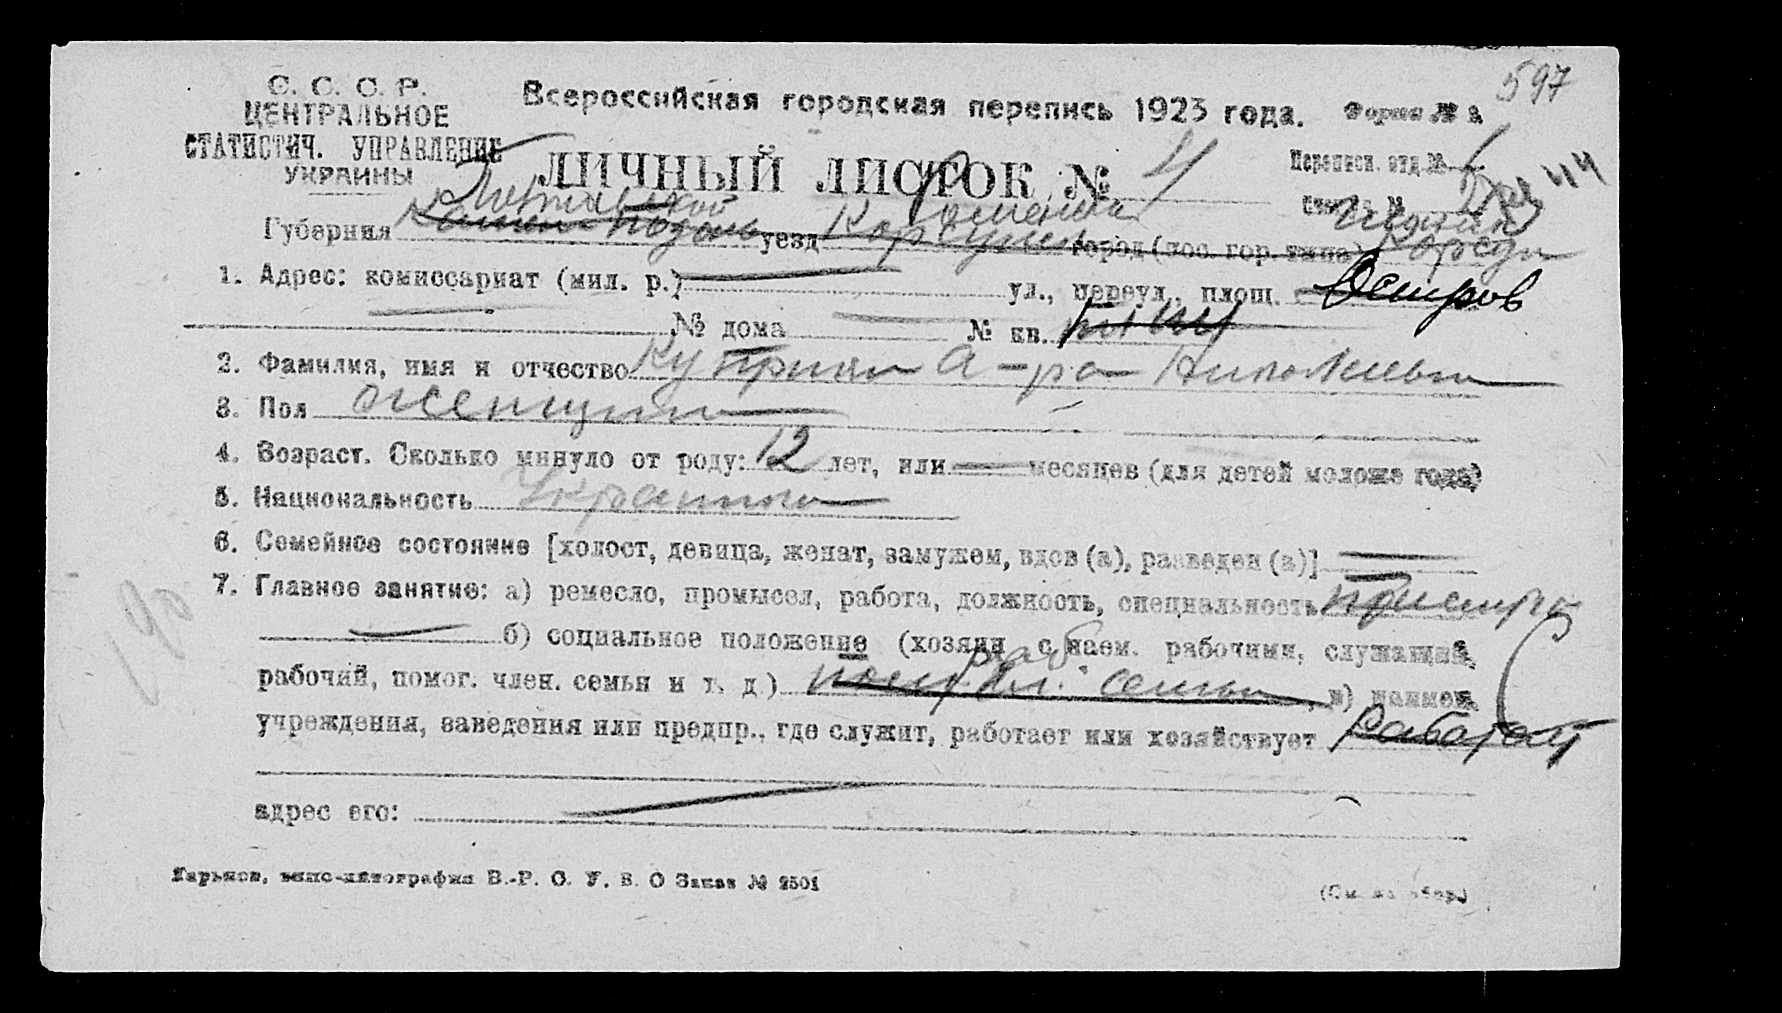 597
С. С. С. Р.
ЦЕНТРАЛЬНОЕ
СТАТИСТИЧ. УПРАВЛЕНИЕ
УКРАИНЫ
Всероссийская городская перепись 1923 года. Форма № 2
ЛИЧНЫЙ ЛИСТОК № 4
Переписн. отд. №
Губерния уезд город (пос. гор. типа)
1. Адрес: комиссариат (мил. р.) ул., переул., площ. Остров
№ дома № кв.
2. Фамилия, имя и отчество Куприян А-ра Николаевна
3. Пол женщина
4. Возраст. Сколько минуло от роду: 12 лет, или месяцев (для детей моложе года)
5. Национальность Украинка
6. Семейное состояние [холост, девица, женат, замужем, вдов (а), разведен (а)]
7. Главное занятие: а) ремесло, промысел, работа, должность, специальность
б) социальное положение (хозяин с наем. рабочими, служащий,
рабочий, помог. член. семьи и т. д.) в) наимен.
учреждения, заведения или предпр., где служит, работает или хозяйствует
адрес его:
Харьков, типо-литография В.-Р. О. У. В. О Заказ № 2501
(См. на обор.)